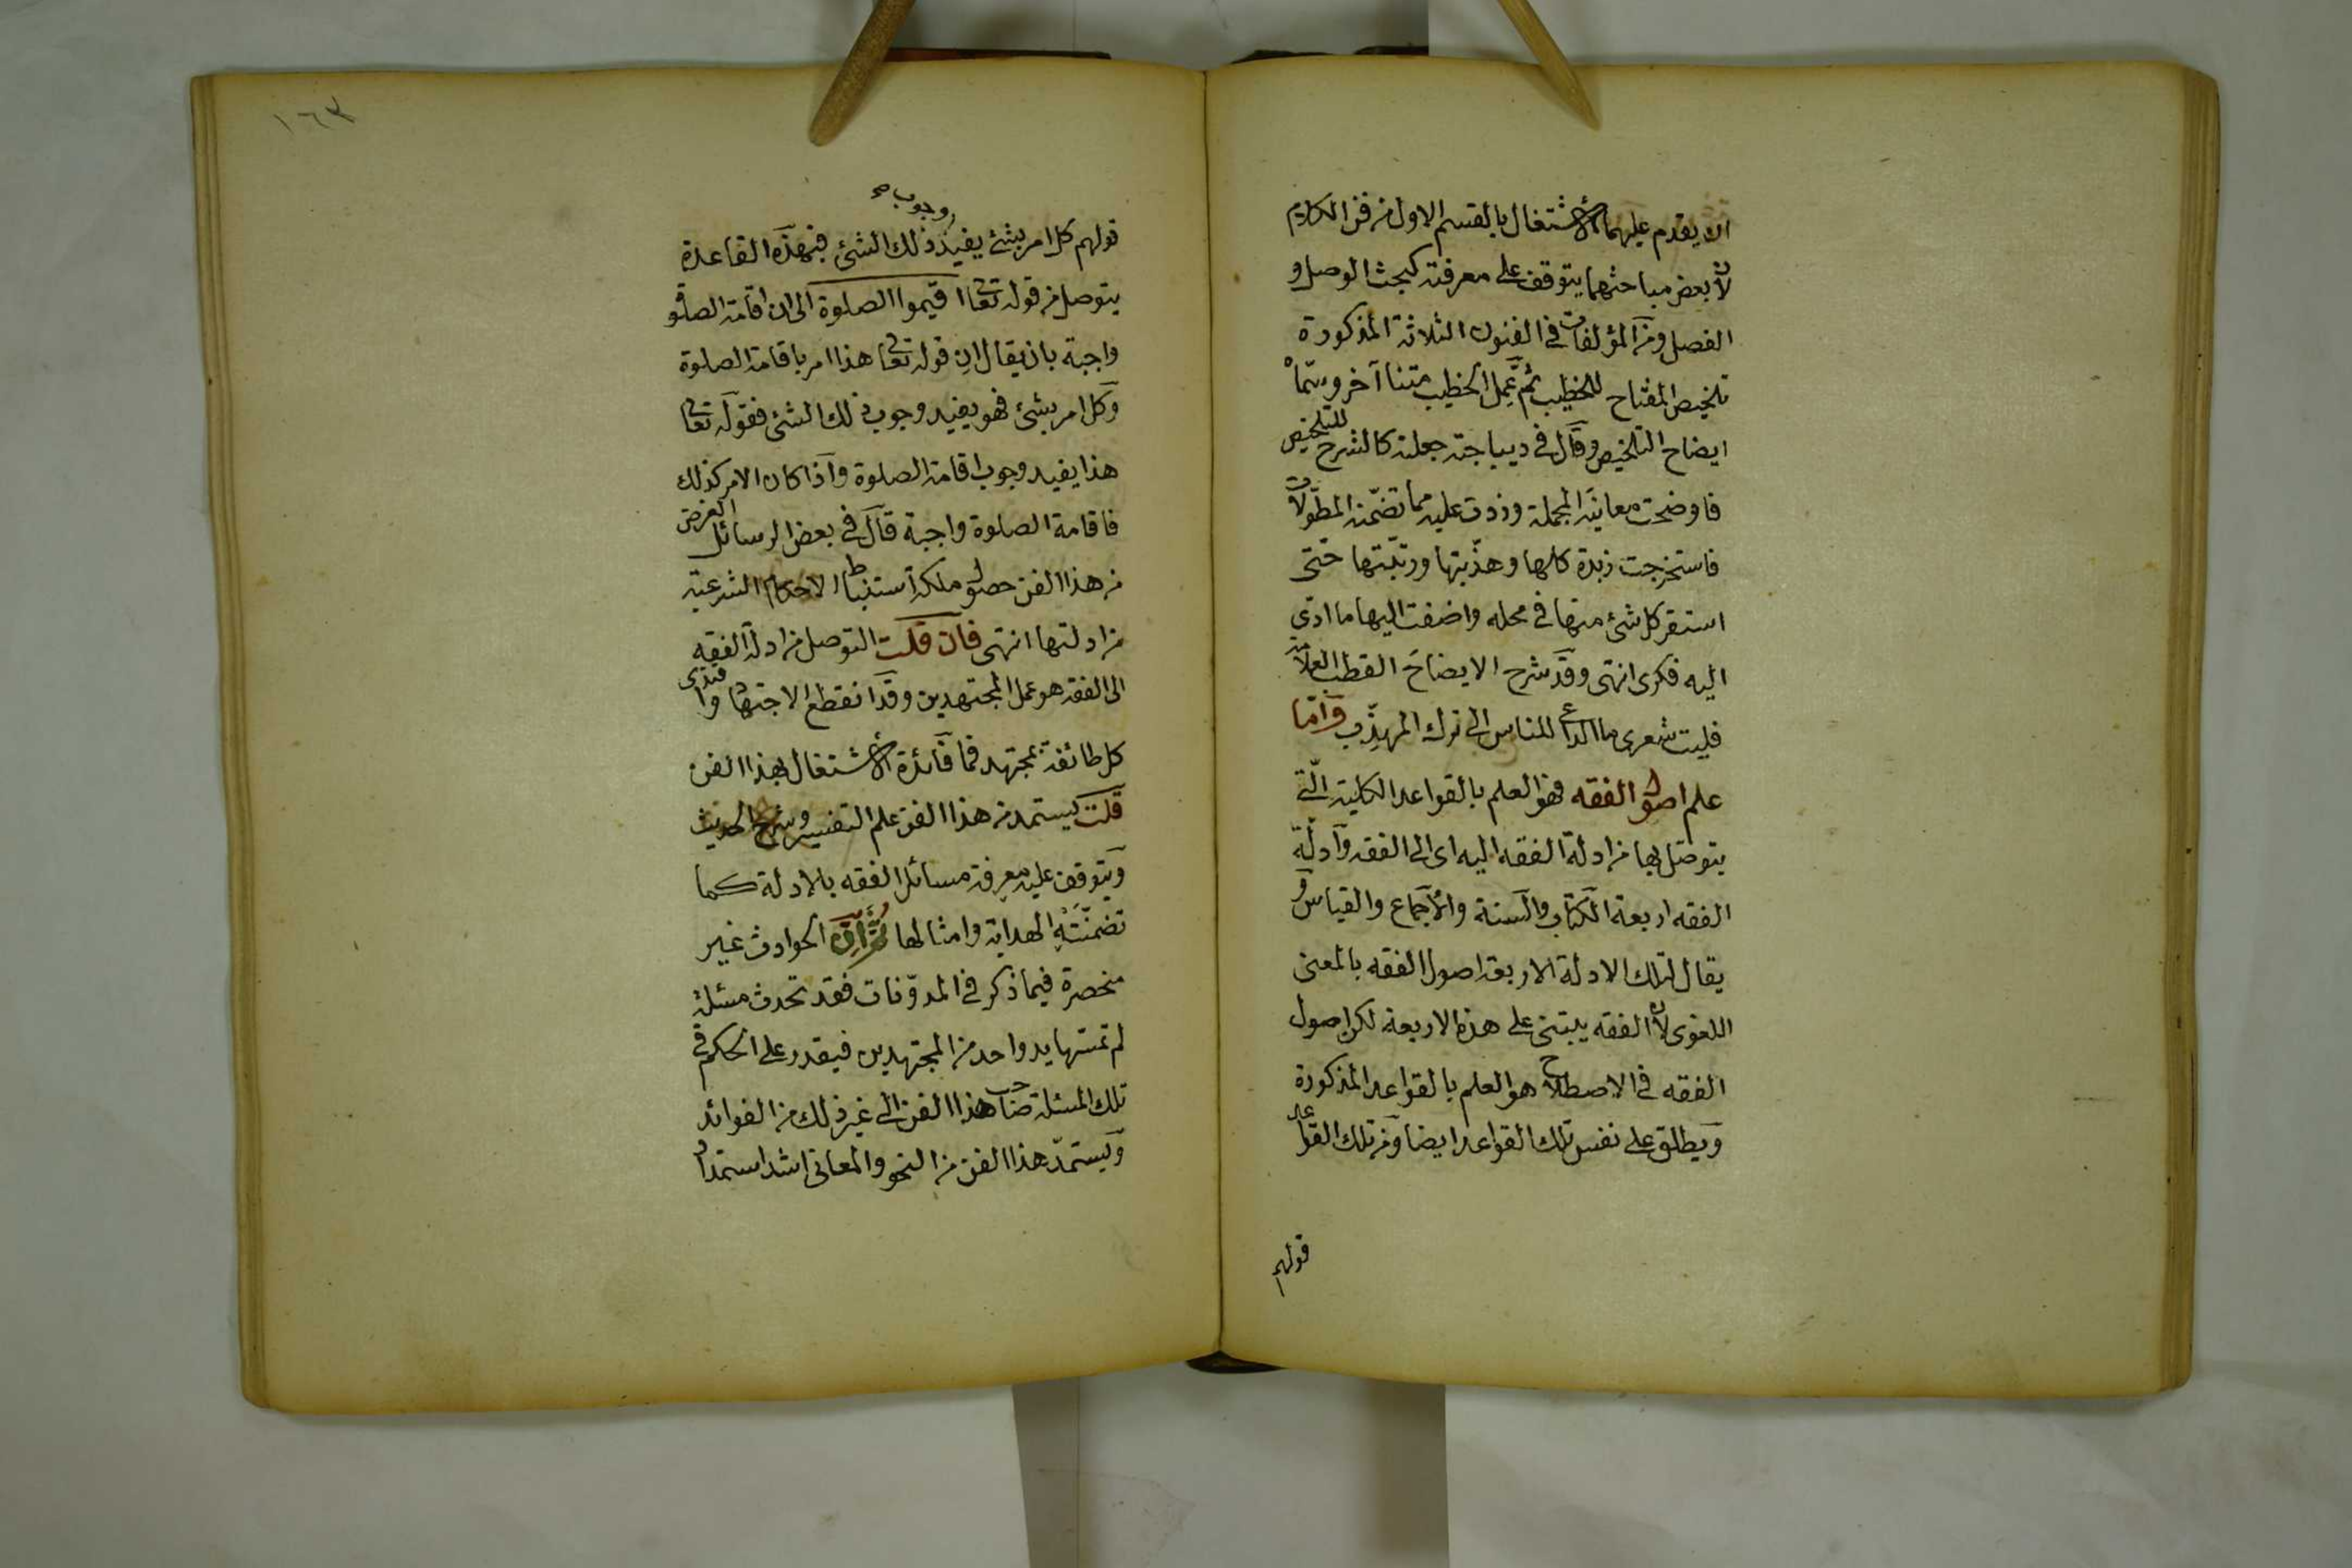 ان يقدم عليهما الاشتغال بالقسم الاول من فن الكلام
لان بعض مباحثهما يتوقف على معرفته كبحث الوصل و
الفصل ومن المؤلفات في الفنون الثلاثة المذكورة
تلخيص المفتاح للخطيب ثم عمل الخطيب متنا آخر وسماه
ايضاح التلخيص وقال في ديباجته جعلته كالشرح للتلخيص
فاوضحت معانيه المجملة وزدت عليه مما تضمنه المطولات
فاستخرجت زبدة كلها وهذبتها ورتبتها حتى
استقر كل شئ منها في محله واضفت اليها ما ادى
اليه فكرى انتهى وقد شرح الايضاح القطب العلامة
فليت شعرى ما الداعى للناس الى ترك المهذب واما
علم اصول الفقه فهو العلم بالقواعد الكلية التى
يتوصل بها من ادلة الفقه اليه اى الى الفقه وادلة
الفقه اربعة الكتاب والسنة والاجماع والقياس وقد
يقال لتلك الادلة الاربعة اصول الفقه بالمعنى
اللغوى لان الفقه يبتنى على هذه الاربعة لكن اصول
الفقه في الاصطلاح هو العلم بالقواعد المذكورة
ويطلق على نفس تلك القواعد ايضا ومن تلك القواعد
قولهم
١٦٣
وجوب صح
قولهم كل امر بشئ يفيد ذلك الشئ فبهذه القاعدة
يتوصل من قوله تعالى اقيموا الصلوة الى ان اقامة الصلوة
واجبة بان يقال ان قوله تعالى هذا امر باقامة الصلوة
وكل امر بشئ فهو يفيد وجوب ذلك الشئ فقوله تعالى
هذا يفيد وجوب اقامة الصلوة واذا كان الامر كذلك
فاقامة الصلوة واجبة قال في بعض الرسائل الغرض
من هذا الفن حصول ملكة استنباط الاحكام الشرعية
من ادلتها انتهى فان قلت التوصل من ادلة الفقه
الى الفقه هو عمل المجتهدين وقد انقطع الاجتهاد واقتدى
كل طائفة بمجتهد فما فائدة الاشتغال بهذا الفن
قلت يستمد من هذا الفن علم التفسير وشرح الحديث
ويتوقف عليه معرفة مسائل الفقه بالادلة كما
تضمنته الهداية وامثالها ثم ان الحوادث غير
منحصرة فيما ذكر في المدونات فقد تحدث مسئلة
لم تمسها يد واحد من المجتهدين فيقدر على الحكم في
تلك المسئلة صاحب هذا الفن الى غير ذلك من الفوائد
ويستمد هذا الفن من النحو والمعانى اشد استمداد